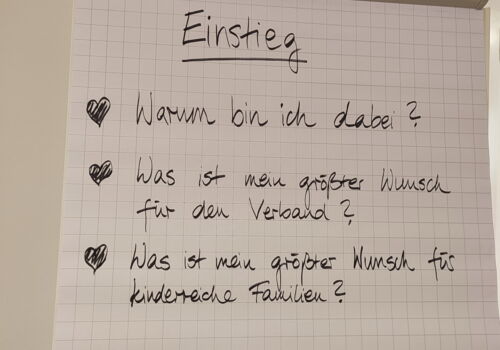 Einstieg
Warum bin ich dabei?
Was ist mein größter Wunsch
für den Verband?
Was ist mein größter Wunsch für
kinderreiche Familien?